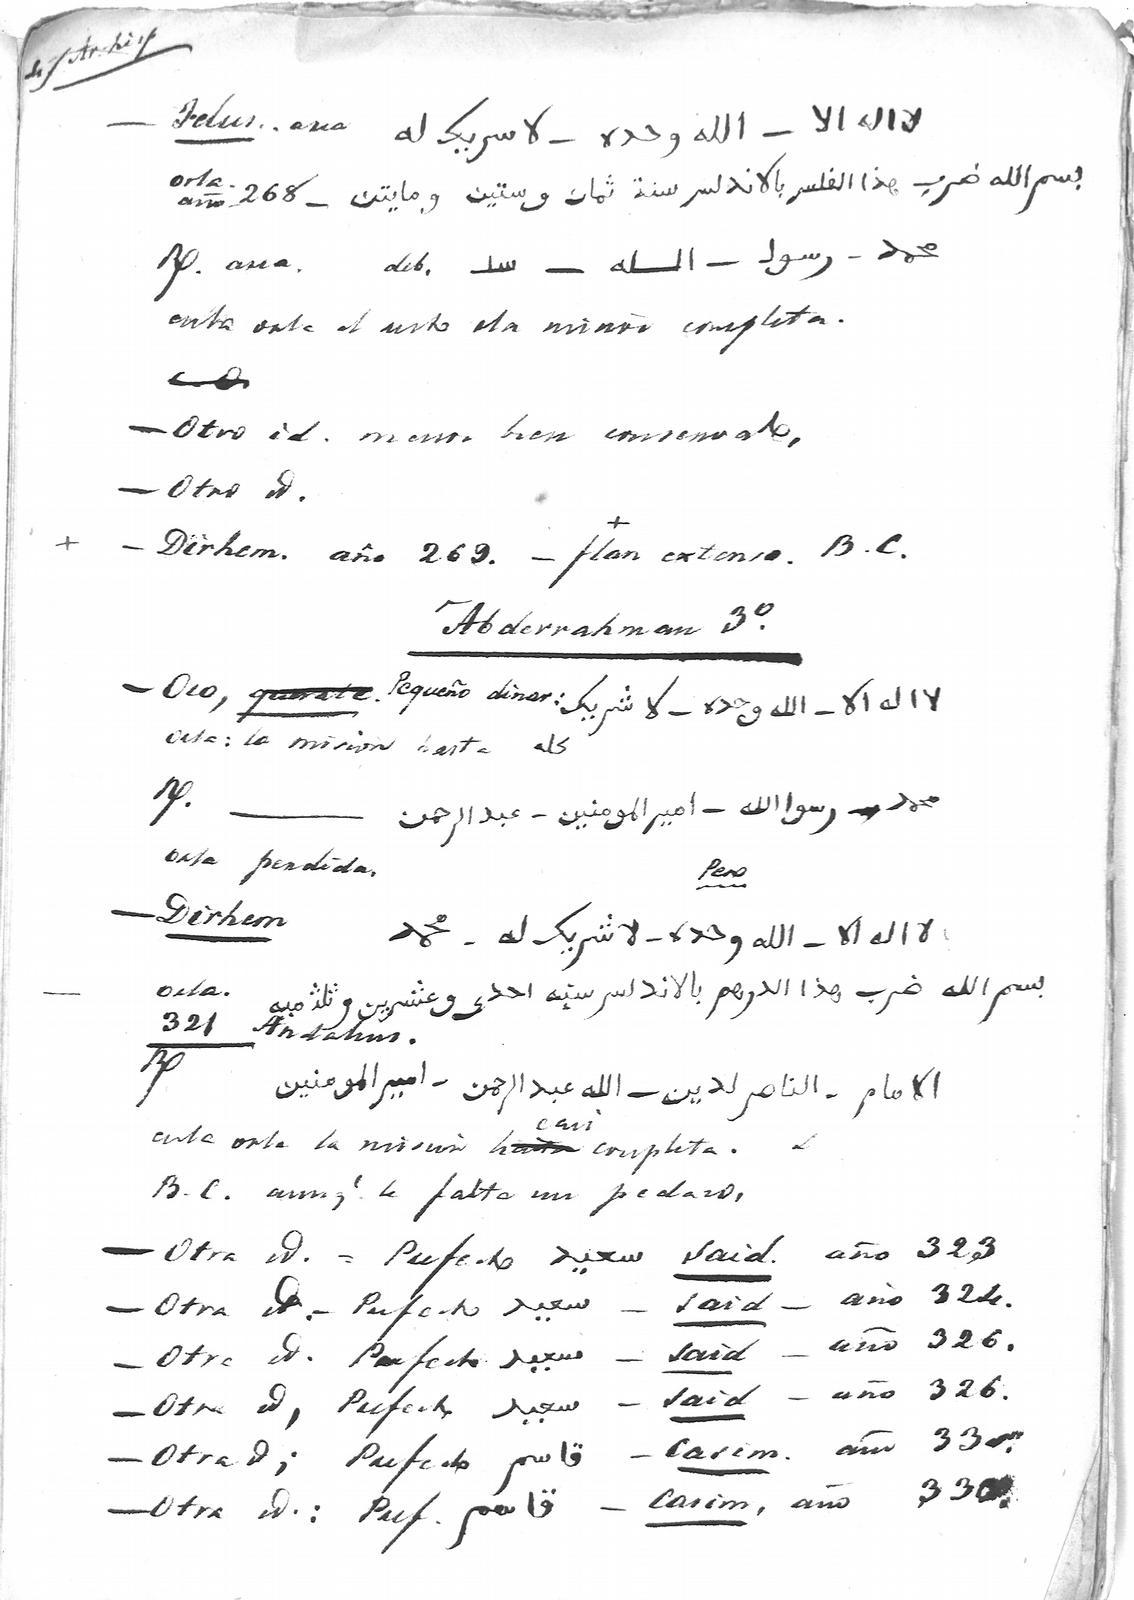 — Felus. area لا اله الا – الله وحده – لا سريک له
orla. año 268 – بسم الله ضرب هذا الفلس بالاندلس سنة ثمان وستين ومايتن
R/. area. محمد – رسول – الله –
esta orla completa.
— Otro id. menos bien conservado,
— Otro id.
+ – Dirhem. año 269. – flan extenso. B.C.
+
Abderrahman 3º.
— Oro, quirate. Pequeño dinar: لا اله الا – الله وحده – لا شريک
orla: la misión hasta كله
R/. — محمد – رسوا الله – امير المومنين – عبد الرحمن
orla perdida.
Pero
— Dirhem لا اله الا – الله وحده – لا شريک له – محمد
— orla. بسم الله ضرب هذا الدرهم بالاندلس سنه احدى وعشرين وثلثميه
321 Andalus.
R/ الامام – الناصر لدين – الله عبد الرحمن – امير المومنين
casi
esta orla la misión hasta completa.
B.C. aunq.e le falta un pedazo,
— Otra id. = Prefecto سعيد Said. año 323
— Otra id. – Prefecto سعيد – Said – año 324.
— Otra id. Prefecto سعيد – Said – año 326.
— Otra id, Prefecto سعيد – Said – año 326.
— Otra id; Prefecto قاسم – Casim. año 330
— Otra id.: Pref. قاسم – Casim, año 330